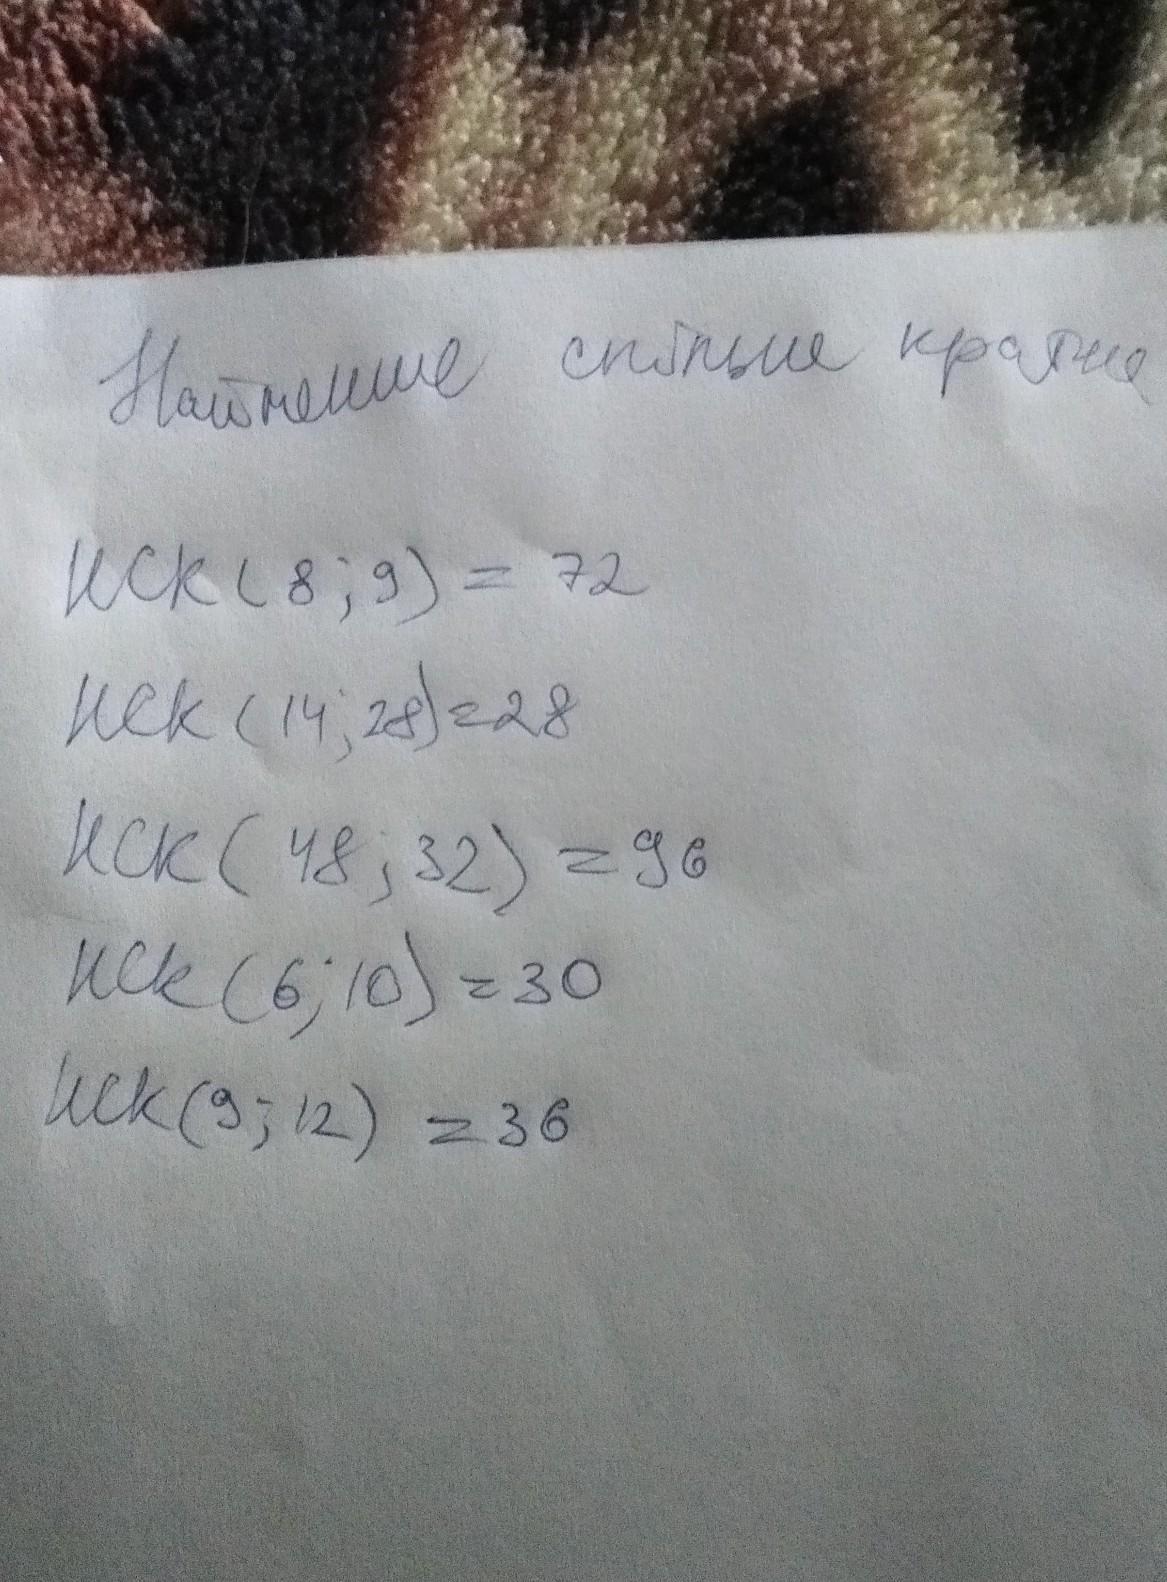 Найменше спільне кратне
НСК(8;9)=72
НСК(14;28)=28
НСК(48;32)=96
НСК(6;10)=30
НСК(9;12)=36